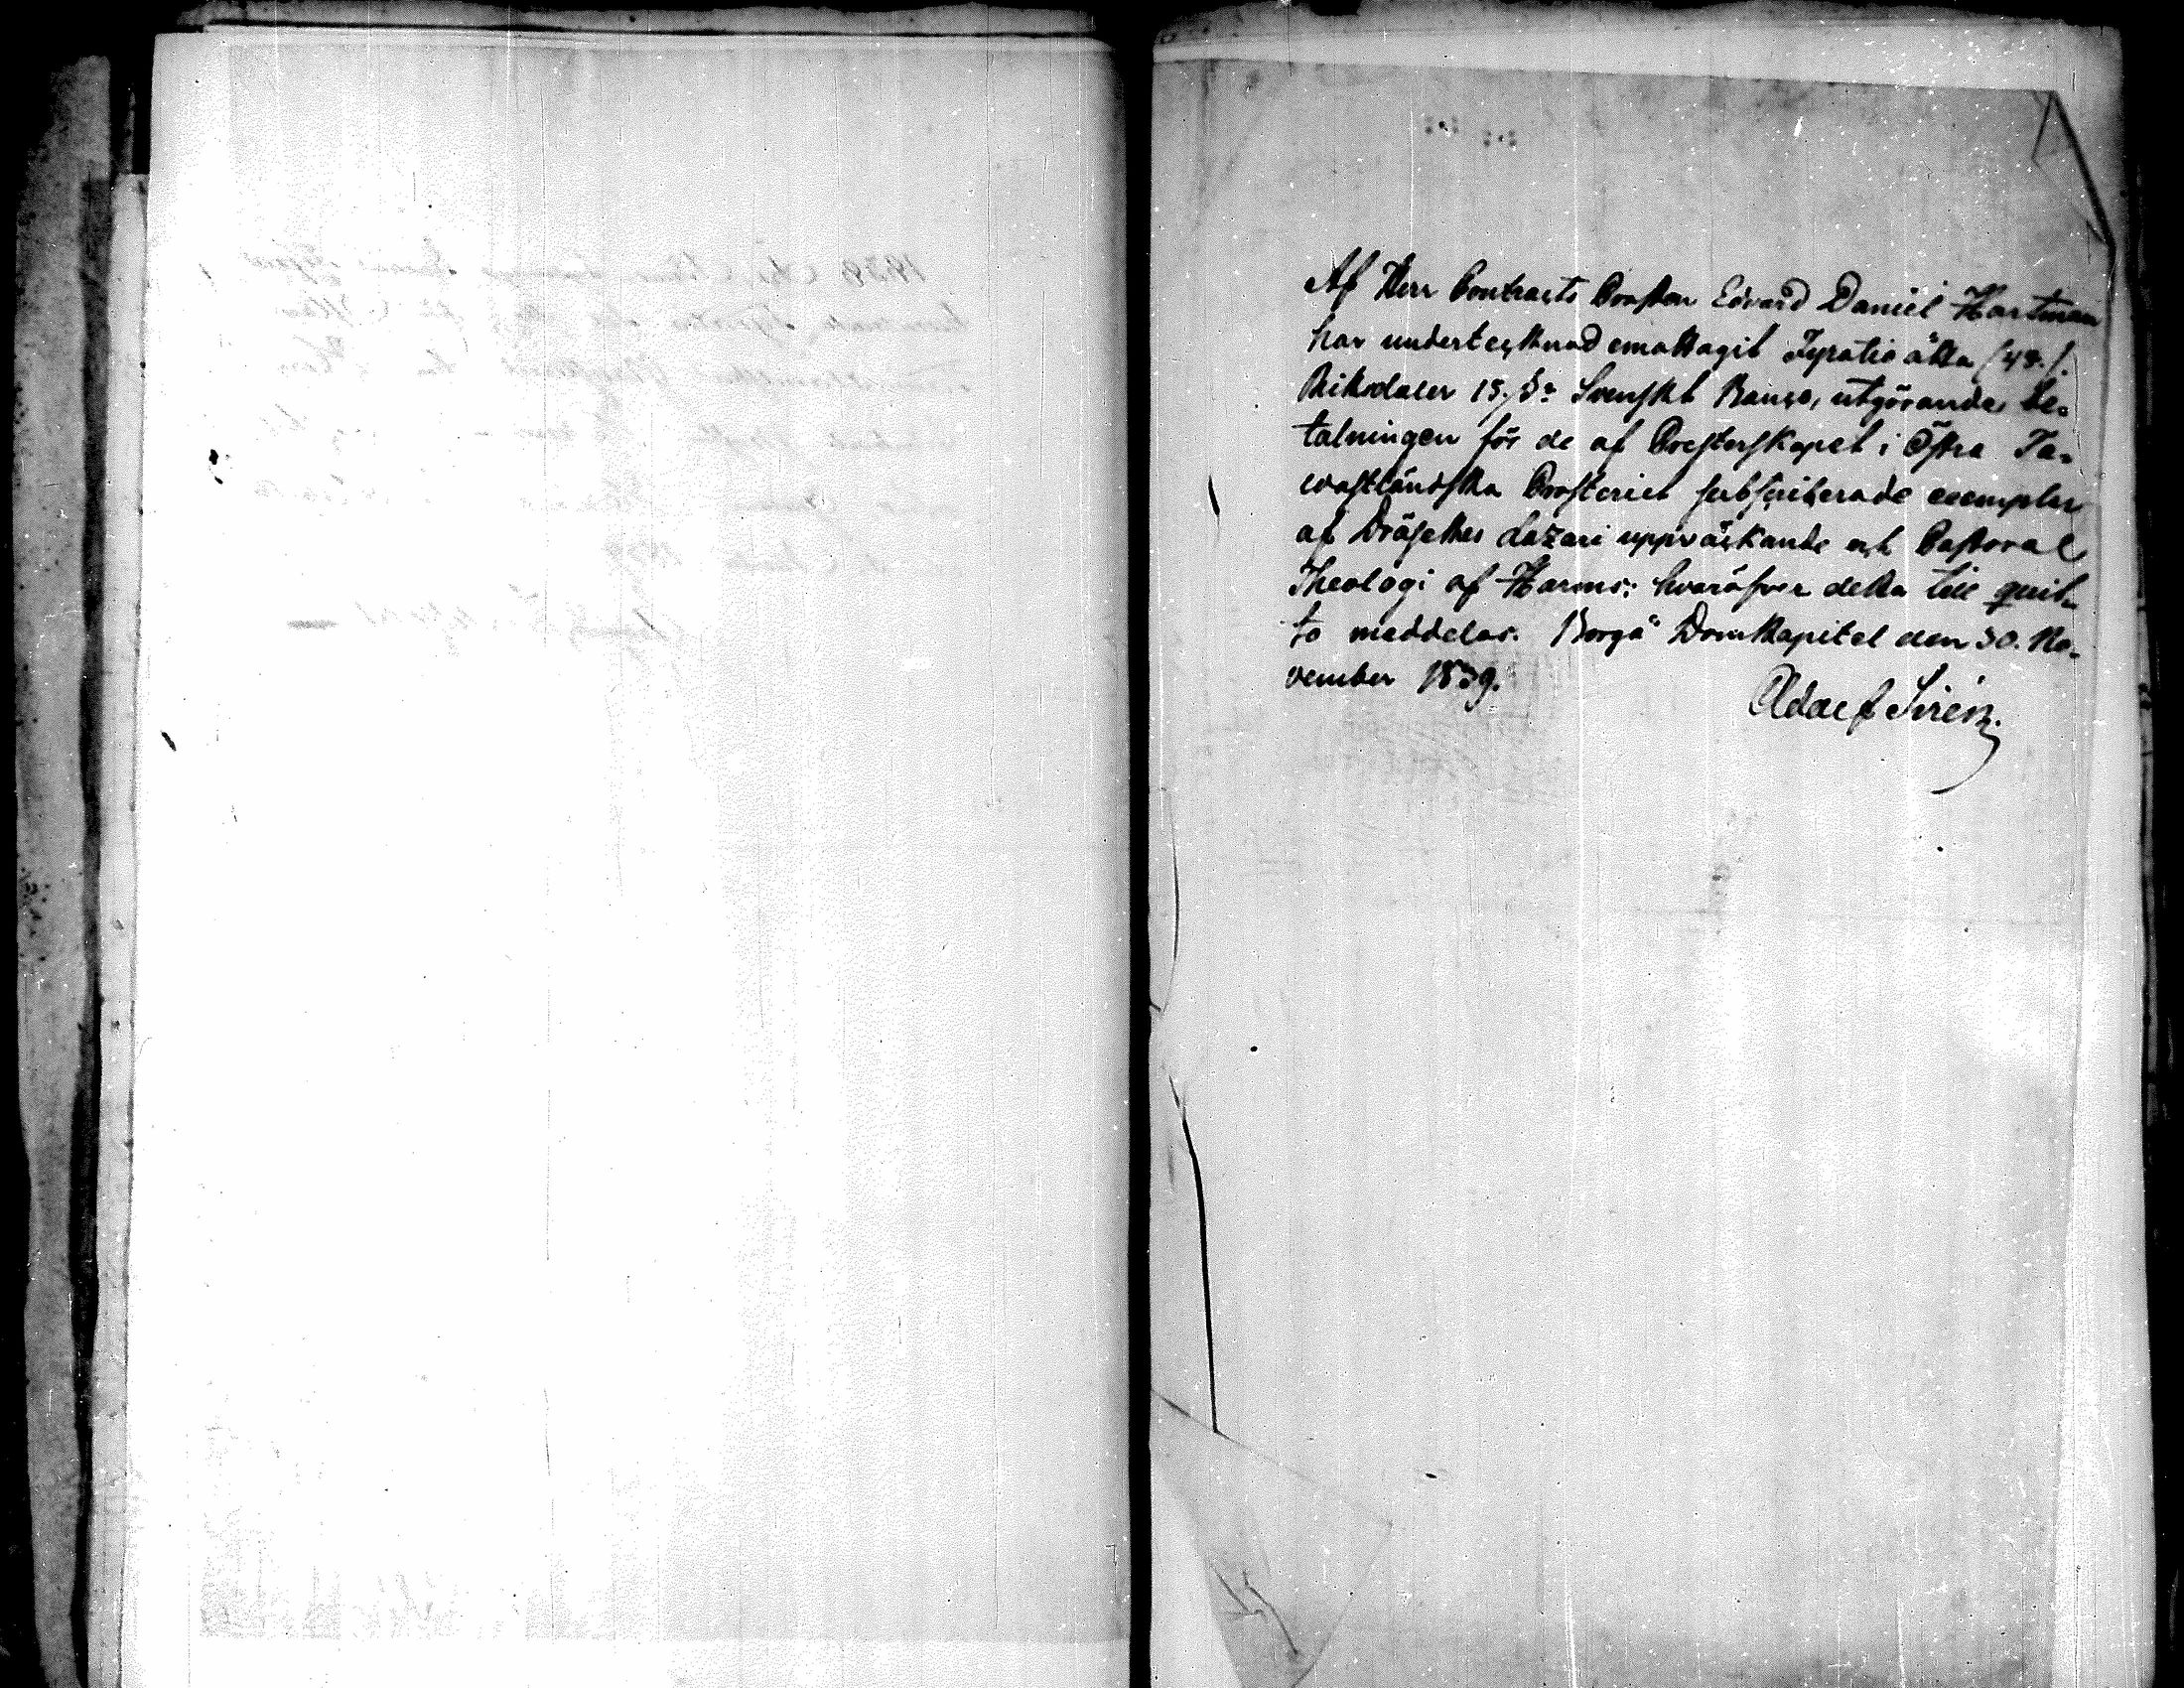 Af Herr Contracts Prosten Edvard Daniel Hartman
har undertecknad emottagit Fyratio åtta /48./.
Riksdaler 15 s. Svenskt Banco, utgörande be-
talningen för de af Presterskapet i Östra Ta-
wastländska Prosteriet subscriberade exemplar
af Dräsekes Lazari uppväckande och Pastoral
Theologi af Harms; hvaröfver detta till quit-
to meddelas. Borgå Domkapitel den 30. No-
vember 1839.
Adolf Sirén.